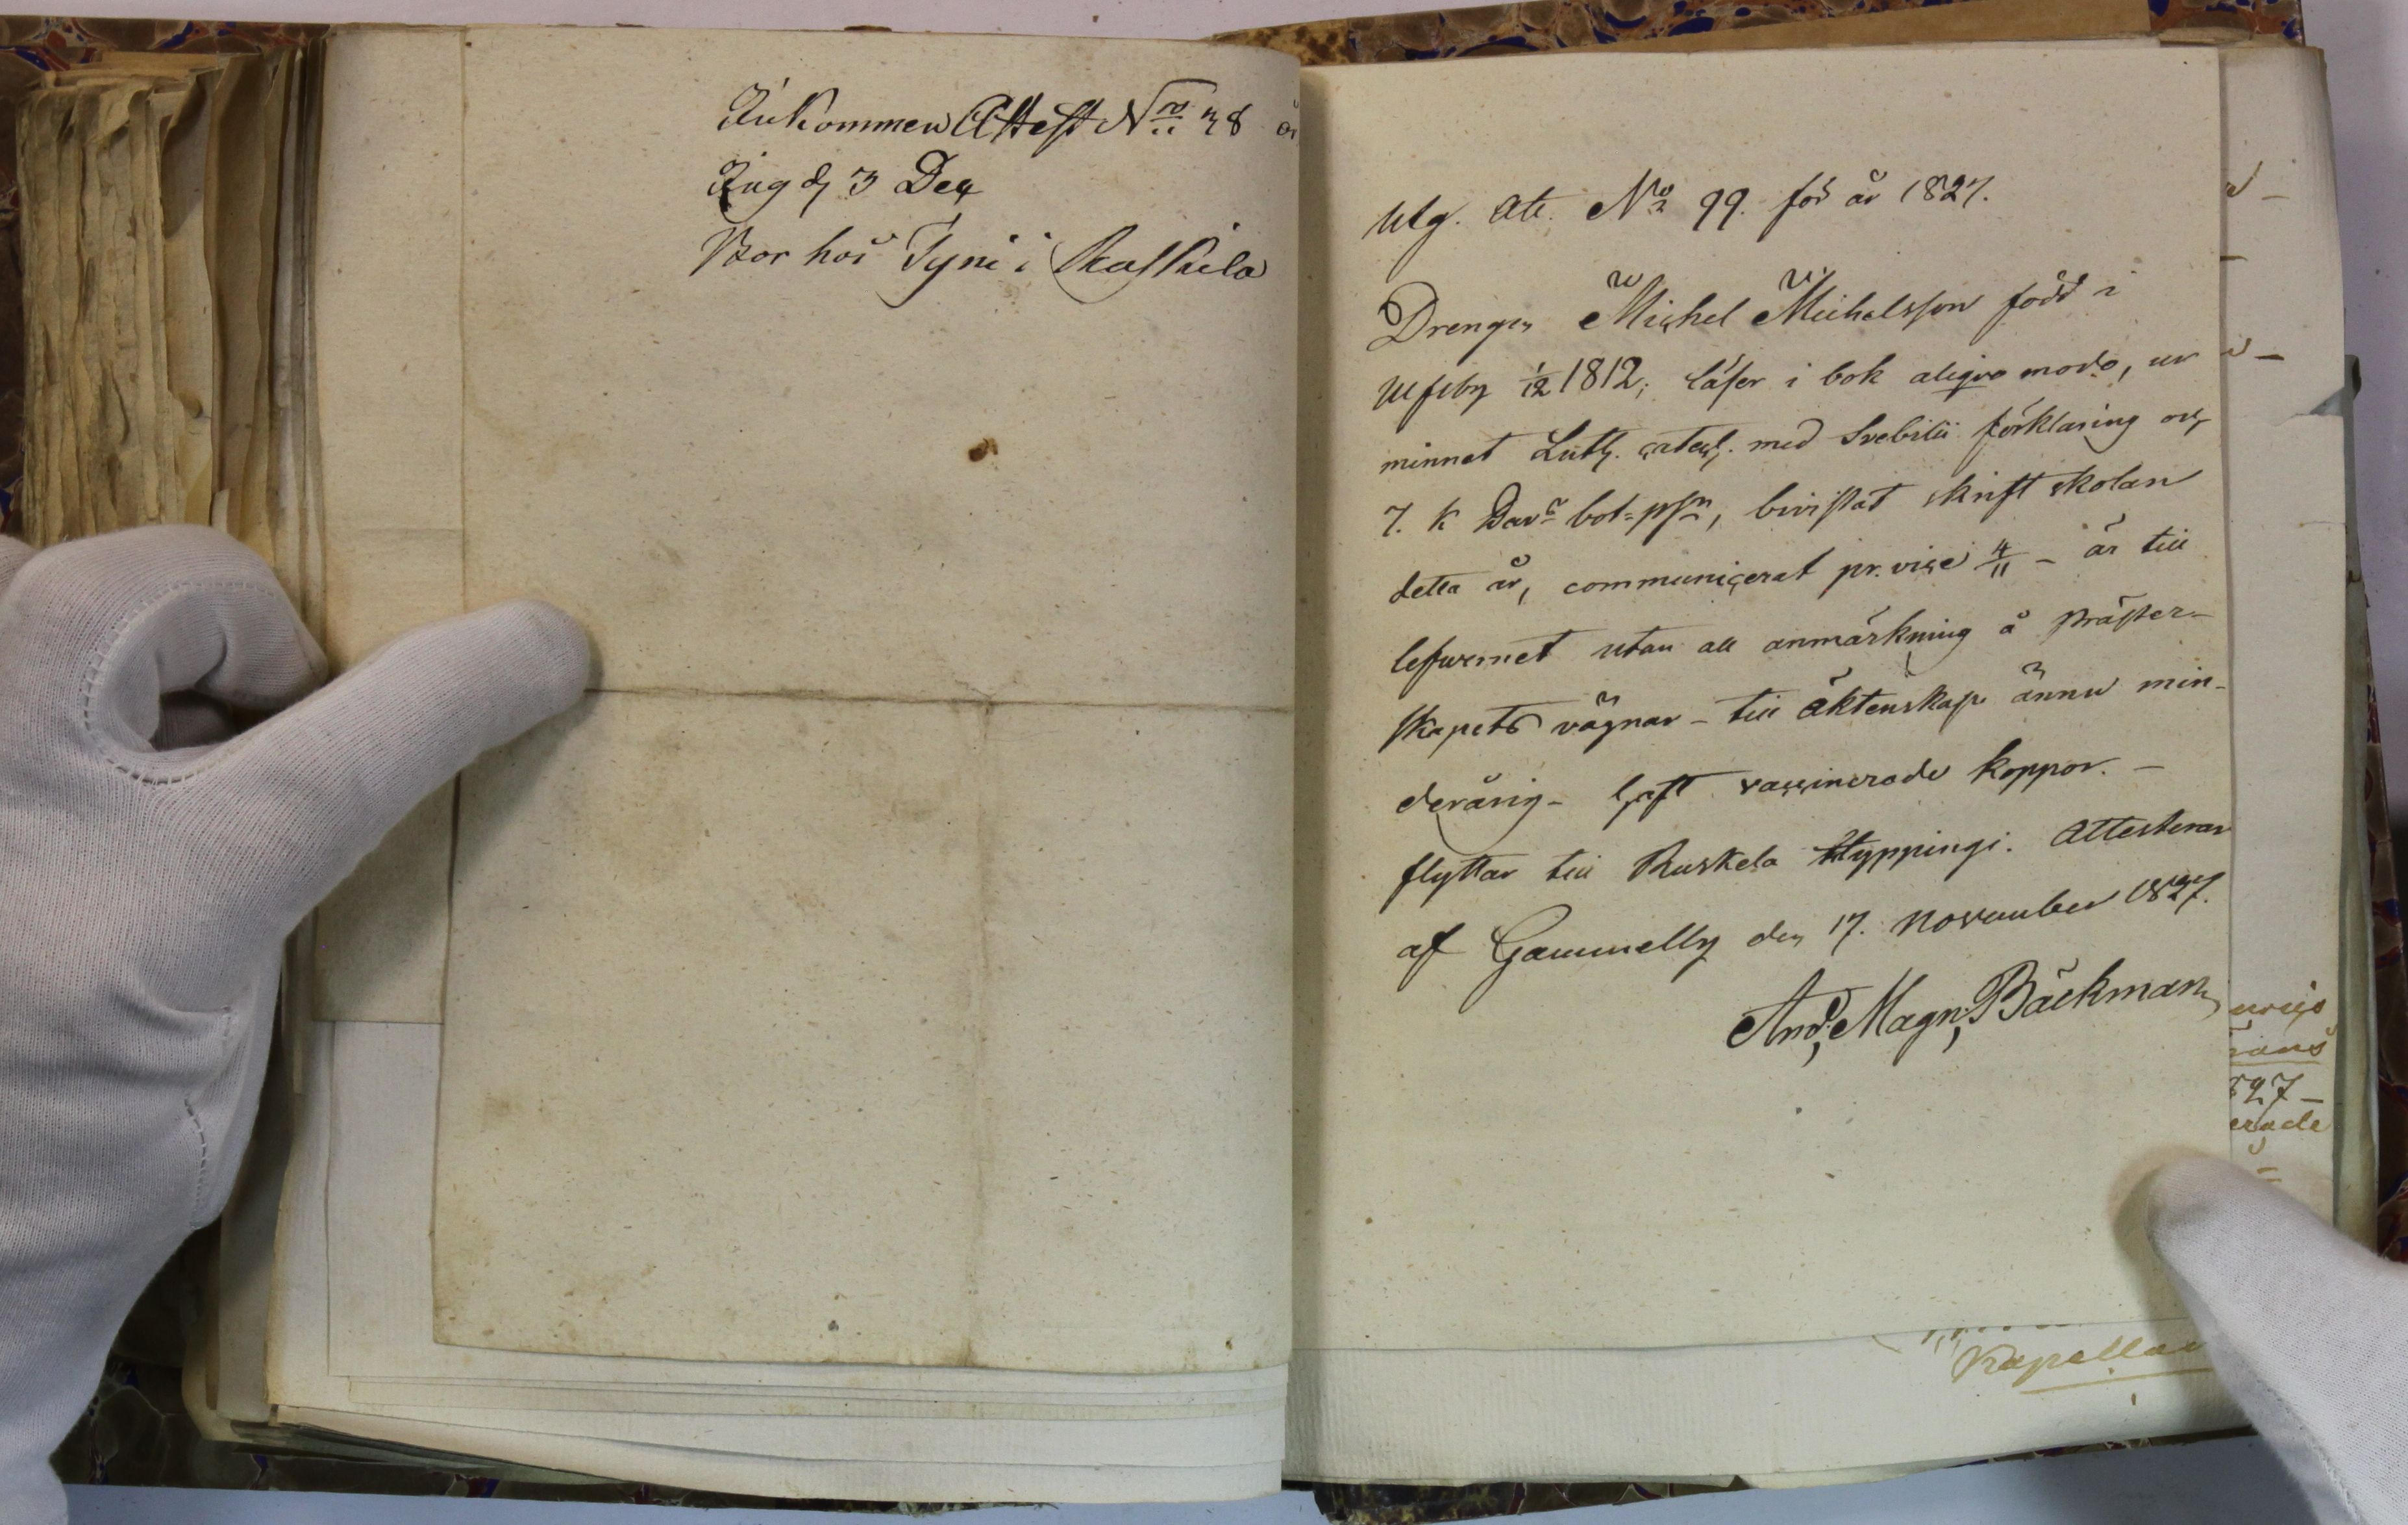 Inkommen Attest No 38
Ing d. 3 Dec
Bor hos Tyni i Raskila
Utg. att. No 99. för år 1827.
Drengen Michel Michelsson född i
Ulfsby 1/12 1812; läser i bok aliqvo modo, ur
minnet Luth. catech. med Svebilii förklaring och
7. K Dav: bot=psr, bivistat skriftskolan
detta år, communicerat pr. vice 4/11 – är till
lefwernet utan all anmärkning å Präster-
skapets vägnar – till äktenskap ännu min-
derårig – haft vaccinerade koppor. –
flyttar till Ruskela Klyppingi. Attesterar
af Gammelby den 17. November 1827.
And. Magn. Bäckman
527 –
erade
Kapellan